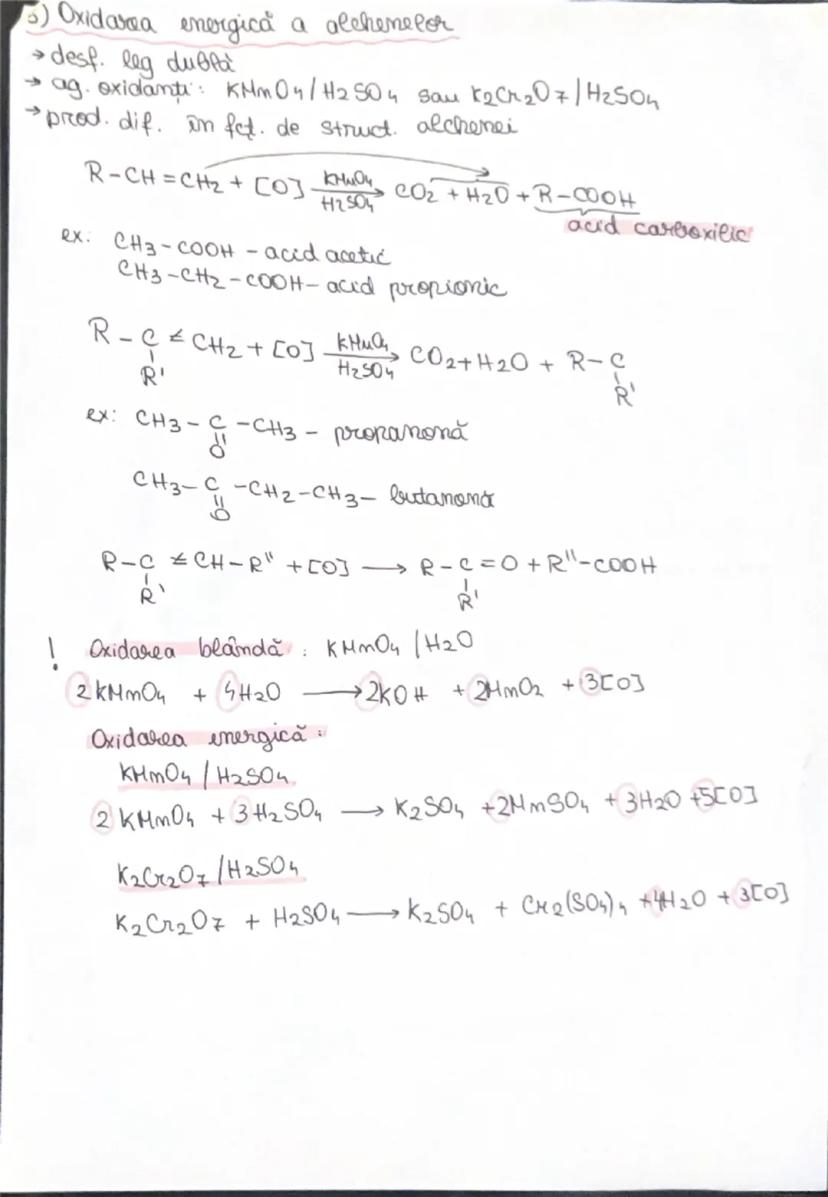 3) Oxidarea energică a alchenelor
→ desf. leg dublă
→ ag. oxidanți: KMnO4/H2SO4 sau K2Cr2O7/H2SO4
→ prod. dif. în fcț. de struct. alchenei
R-CH=CH2 + [O] KMnO4 H2SO4 → CO2 + H2O + R-COOH
acid carboxilic
ex: CH3-COOH - acid acetic
CH3-CH2-COOH- acid propionic
R-C=CH2 + [O] KMnO4 H2SO4 → CO2+H2O + R-C
R' R'
ex: CH3-C-CH3- propanonă
O
CH3-C-CH2-CH3- butanonă
O
R-C=CH-R'' +[O] → R-C=O+R''-COOH
R' R'
! Oxidarea blândă: KMnO4/H2O
2KMnO4 + 4H2O → 2KOH + 2MnO2 + 3[O]
Oxidarea energică:
KMnO4/H2SO4
2 KMnO4 + 3H2SO4 → K2SO4 +2MnSO4 + 3H2O +5[O]
K2Cr2O7/H2SO4
K2Cr2O7 + H2SO4 → K2SO4 + Cr2(SO4)4 +4H2O + 3[O]